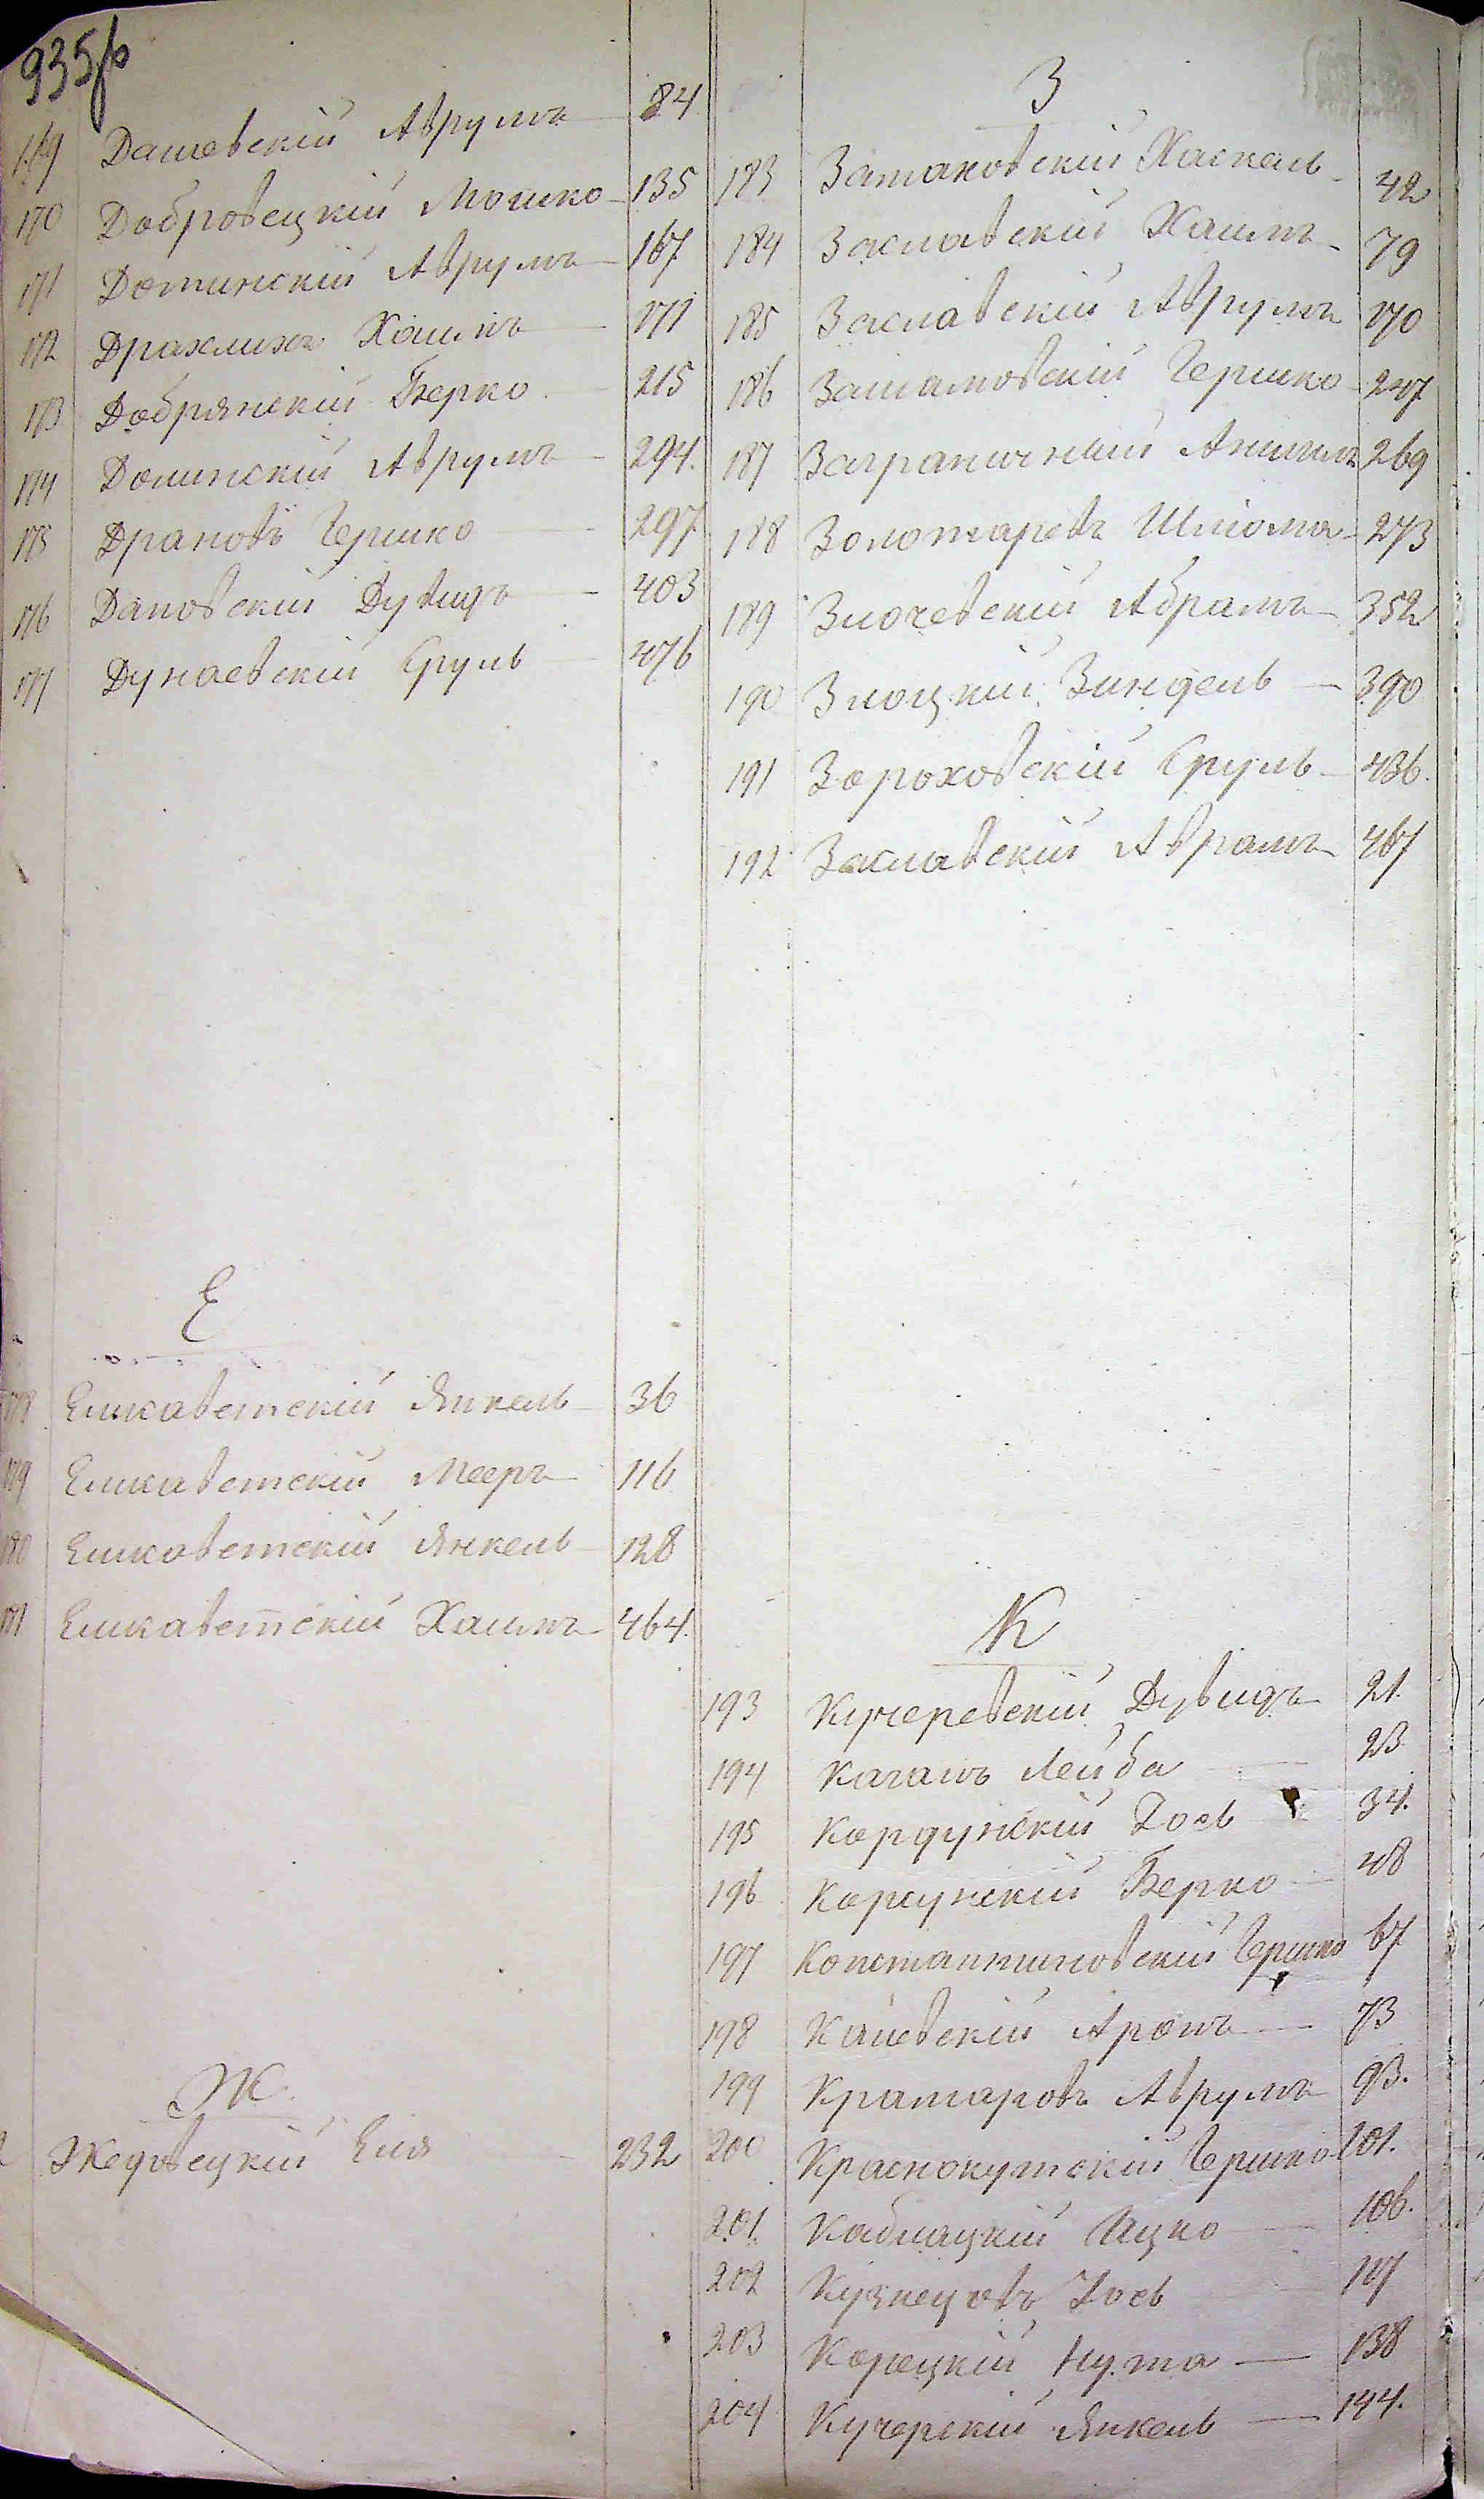 935 р
169 Дашевскій Аврумъ 84
170 Добровецкій Мошко 135
171 Дотинскій Аврумъ 167
172 Драхлихъ Хаимъ 171
173 Добрянскій Берко 215
174 Долинскій Аврумъ 294.
175 Драновъ Гершко 297
176 Дановскій Дувидъ 403
177 Дунаевскій Сруль 476
Е
178 Елисаветскій Янкель 36
179 Елисаветскій Мееръ 116
180 Елисаветскій Янкель 128
181 Елисаветскій Хаимъ 464.
Ж
Жедвецкій Еля 232
З
183 Затаковскій Хаскель 42
184 Заславскій Хаимъ 79
185 Заславскій Аврумъ 170
186 Гершко 247
187 Заграничный Аншель 269
188 Золотаревъ Шліома 273
189 Злочевскій Абрамъ 352
190 Злоцкій Зиндель 390
191 Зороховскій Сруль 436.
192 Заславскій Аврамъ 467
К
193 Кучеревскій Дувидъ 21.
194 Каганъ Лейба 23
195 Кордунскій Іось 34.
196 Корсунскій Берко 48
197 Константиновскій Гершко 67
198 Каневскій Аронъ 73
199 Крамаровъ Аврумъ 93.
200 Краснокутскій Гершко 101.
201. Каблацкій Ицко 106.
202 Кузнецовъ Іось 117
203 Корецкій Нута 138
204 Кучерскій Янкель 144.